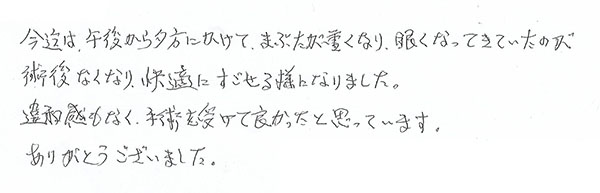 今迄は、午後から夕方にかけて、まぶたが重くなり、眠くなってきていたのが
術後なくなり、快適にすごせる様になりました。
違和感もなく、手術を受けて良かったと思っています。
ありがとうございました。